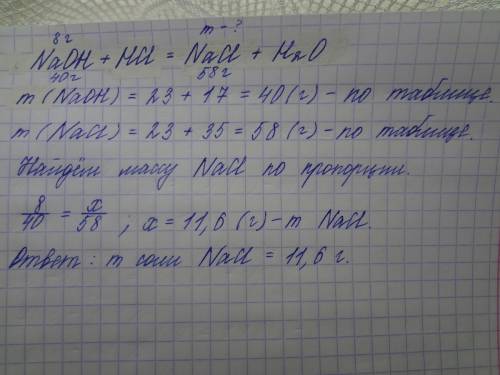 8г m - ?
NaOH + HCl = NaCl + H₂O
40г 58г
m (NaOH) = 23 + 17 = 40 (г) - по таблице
m (NaCl) = 23 + 35 = 58 (г) - по таблице.
Найдём массу NaCl по пропорции.
8/40 = x/58 ; x = 11,6 (г) - m NaCl.
Ответ: m соли NaCl = 11,6 г.